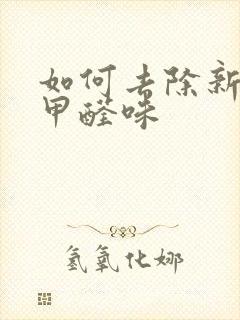 如何去除新
甲醛味
氢氧化娜